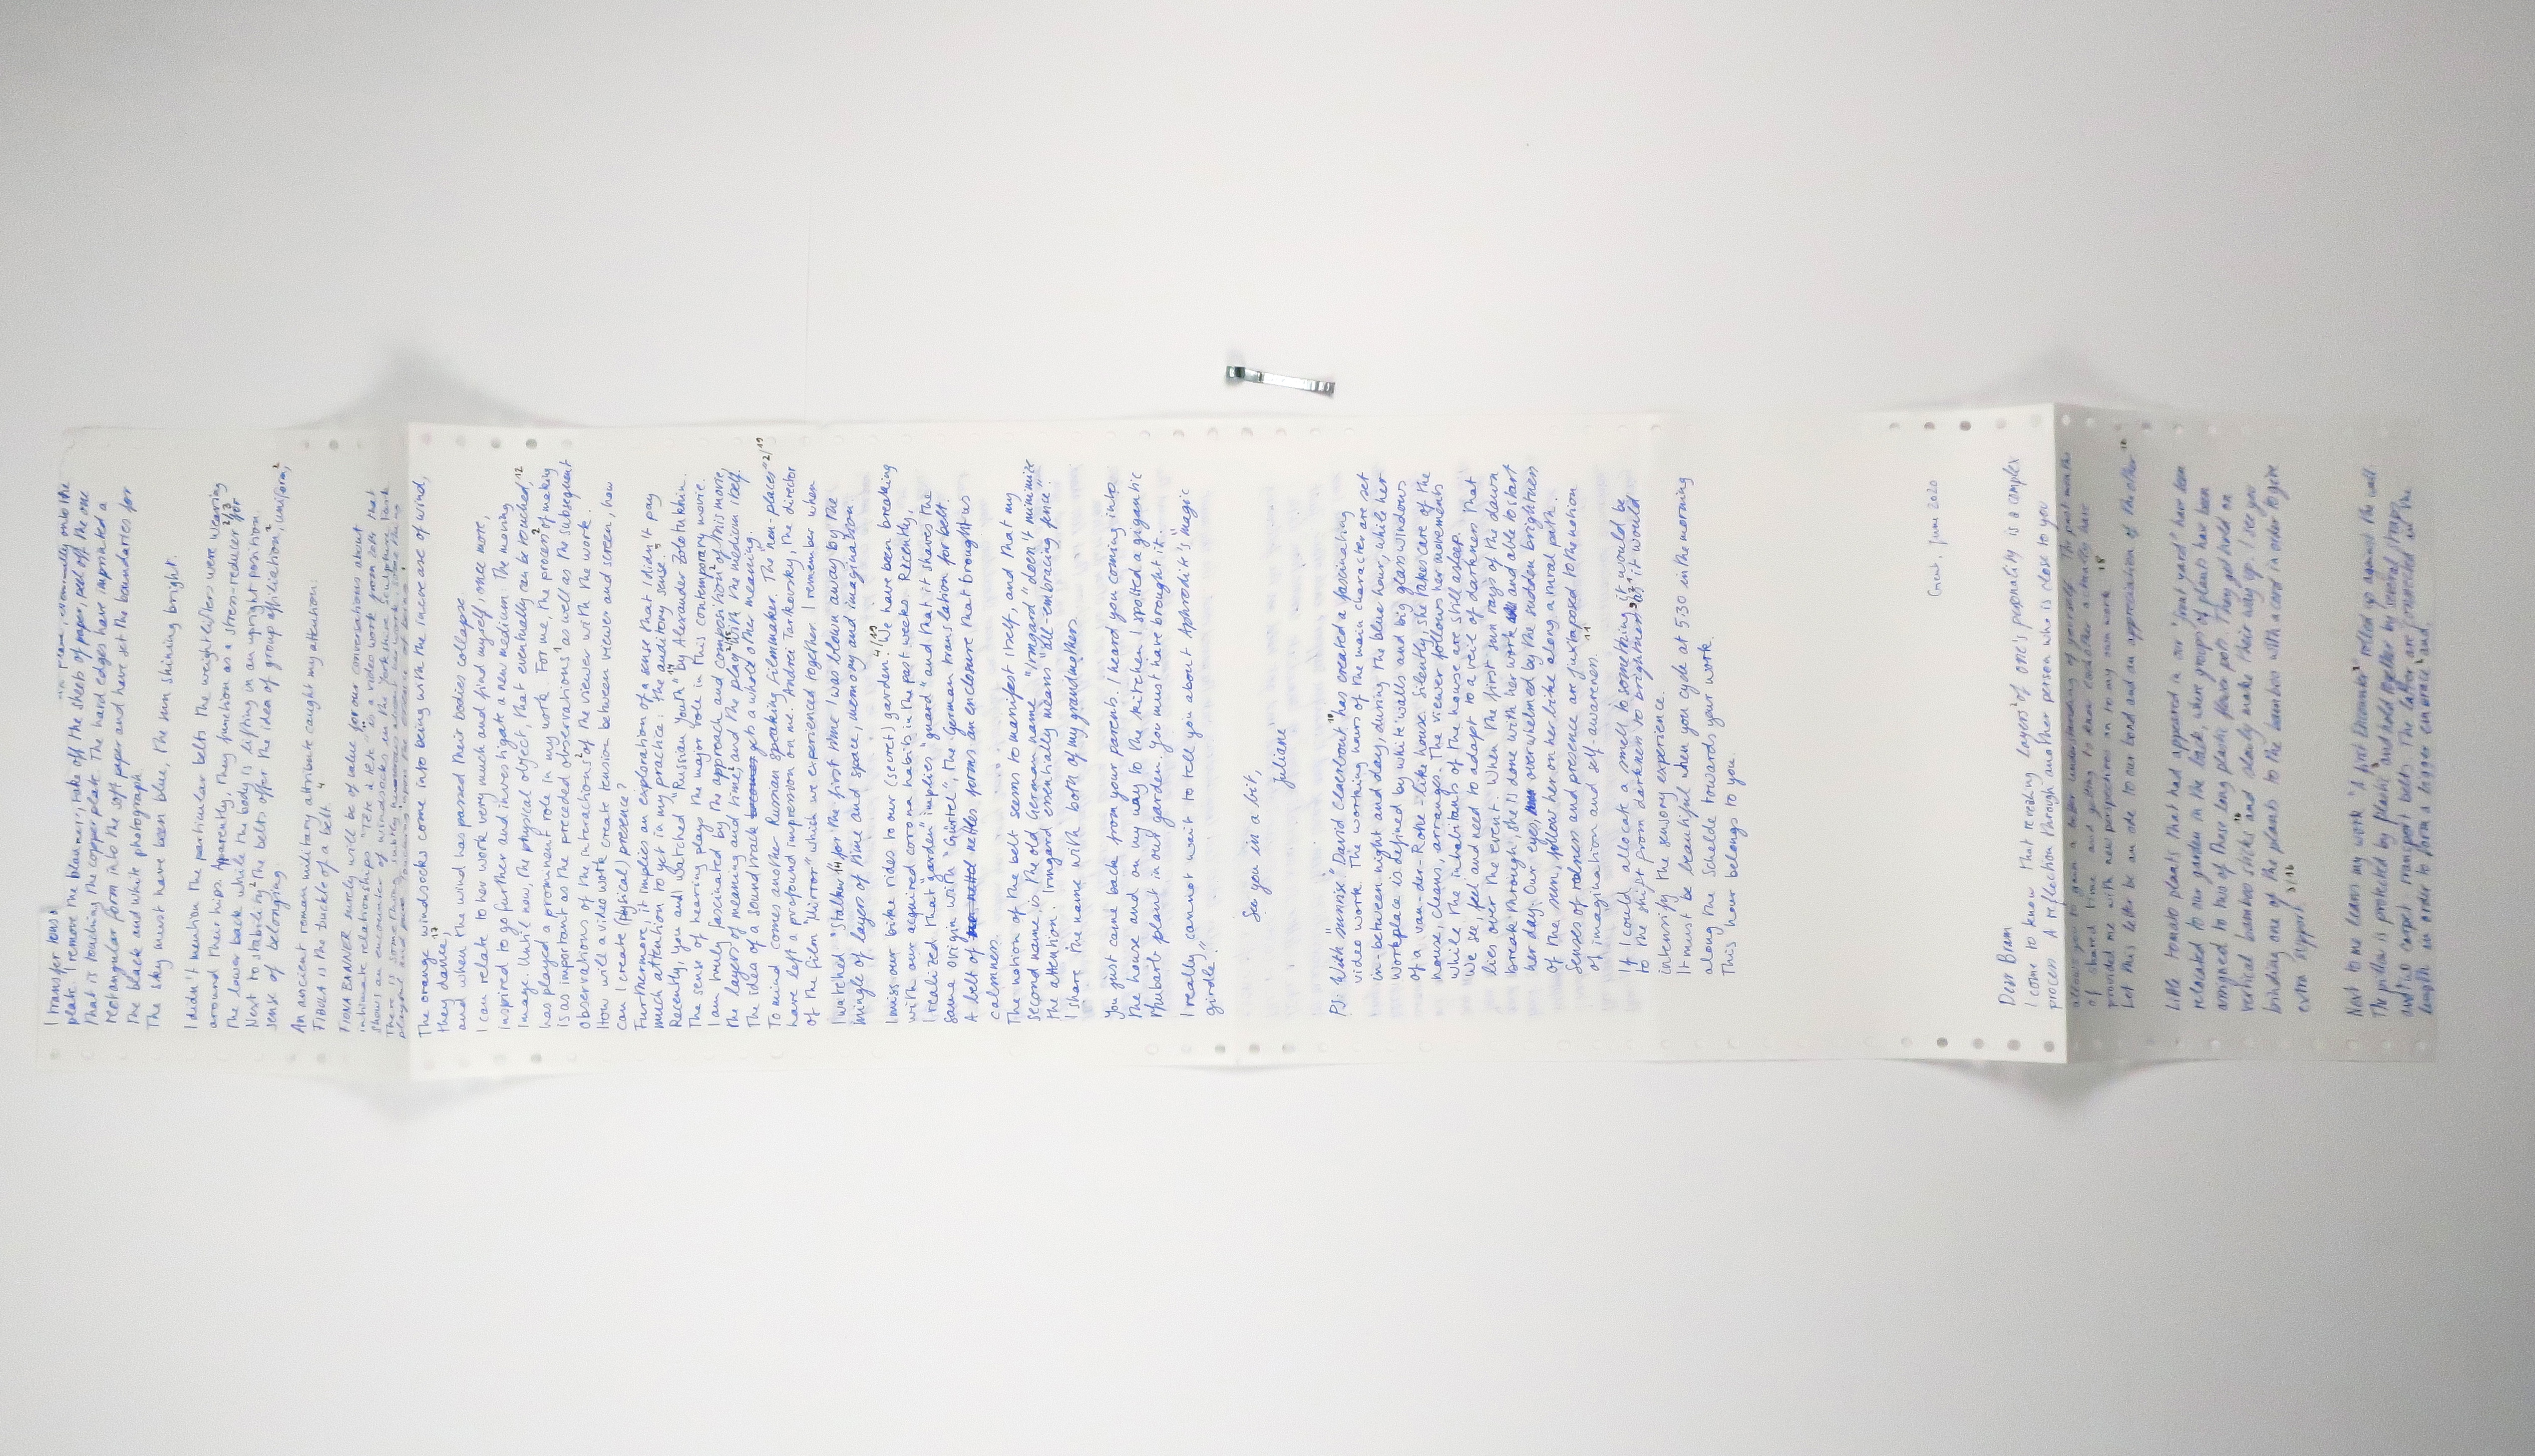 Gent, June 2020
Dear Bram
I come to know that revealing layers² of one's personality is a complex
process. A reflection through another person who is close to you
allows you to gain a better understanding of yourself. The past months
of shared time and getting to know each other actually have
provided me with new perspectives on to my own work.¹⁸
Let this letter be an ode to our bond and an appreciation of the other¹⁸
Little tomato plants that had appeared in our "front yard" have been
relocated to our garden in the back, where groups of plants have been
assigned to two of these long plastic flower pots. They get hold on
vertical bamboo sticks¹⁶ and slowly make their way up. I see you
binding one of the plants to the bamboo with a cord in order to give
even support.³/¹⁶
Next to me leans my work "A first December"² rolled up against the wall.
The pillow is protected by plastic³ and hold together by several straps
and two carpet transport belts. The latter are connected in the
length in order to form a bigger embrace² and
I transfer (ons)
plate. I remove the blankets, take off the sheets of paper, peel off the one
that is touching the copper plate. The hard edges have imprinted a
rectangular form into the soft paper and have set the boundaries for
the black and white photograph.
The sky must have been blue, the sun shining bright.
I didn't mention the particular belts the weightlifters were wearing
around their hips. Apparently, they function as a stress-reducer²/³ for
the lower back while the body is lifting in an upright position.
Next to stability² the belts offer the idea of group affiliation, uniform,²
sense of belonging.
An ancient roman military attribute caught my attention:
FIBULA is the buckle of a belt.⁴
FIONA BANNER surely will be of value for our conversations about
intimate relationships. "Tête à tête" is a video work from 2014 that
shows an encounter of windsocks in the Yorkshire Sculpture Park.
The orange windsocks come into being with the increase of wind,
they dance,¹⁷
and when the wind has passed their bodies collapse.
I can relate to her work very much and find myself, once more,
inspired to go further and investigate a new medium: The moving
image. Until now, the physical object, that eventually can be touched,¹²
has played a prominent role in my work. For me, the process² of making
is as important as the preceded observations¹ as well as the subsequent
observations of the interactions² of the viewer with the work.
How will a video work create tension between viewer and screen, how
can I create (physical) presence?
Furthermore, it implies an exploration of a sense that I didn't pay
much attention to yet in my practice: the auditory sense.⁵
Recently, you and I watched "Russian Youth"¹⁹ by Alexander Zolotukhin.
The sense of hearing plays the major role in this contemporary movie.
I am truly fascinated by the approach and composition² of this movie,
the layers² of meaning and time, and the play²/¹⁵ with the medium itself.
The idea of a soundtrack gets a whole other meaning.
To mind comes another Russian speaking filmmaker. The "non-places"²/¹⁹
have left a profound impression on me. Andrei Tarkovsky, the director
of the film "Mirror" which we experienced together. I remember when
I watched "Stalker"¹⁹ for the first time I was blown away by the
mingle of layers of time and space, memory and imagination.
I miss our bike rides to our (secret) garden.⁴/¹⁹ We have been breaking
with our acquired corona habits in the past weeks. Recently,
I realized that "garden" implies "guard" and that it shares the
same origin with "Gürtel", the German translation for belt.
A belt of nettles forms an enclosure that brought us
calmness.
The notion of the belt seems to manifest itself, and that my
second name is the old German name "Irmgard" doesn't minimize
the attention. Irmgard essentially means "all-embracing fence".
I share the name with both of my grandmothers.
You just came back from your parents. I heard you coming into
the house and on my way to the kitchen I spotted a gigantic
rhubarb plant in our garden. You must have brought it.
I really cannot wait to tell you about Aphrodite's "magic
girdle".
See you in a bit,
Juliane
PS: With "Sunrise"¹⁸ David Claerbout has created a fascinating
video work. The working hours of the main character are set
in-between night and day, during the blue hour, while her
workplace is defined by white walls and big glass windows
of a van-der-Rohe-like house. Silently, she takes care of the
house, cleans, arranges. The viewer follows her movements
while the inhabitants of the house are still asleep.
We see, feel and need to adapt to a veil of darkness that
lies over the event. When the first sun rays of the dawn
break through, she is done with her work and able to start
her day. Our eyes, overwhelmed by the sudden brightness
of the sun, follow her on her bike along a rural path.
Senses of realness and presence are juxtaposed to the notion
of imagination and self-awareness.¹¹
If I could allocate a smell to something, it would be
to the shift from darkness to brightness, as it would
intensify the sensory experience.
It must be beautiful when you cycle at 5:30 in the morning
along the Schelde towards your work.
This hour belongs to you.